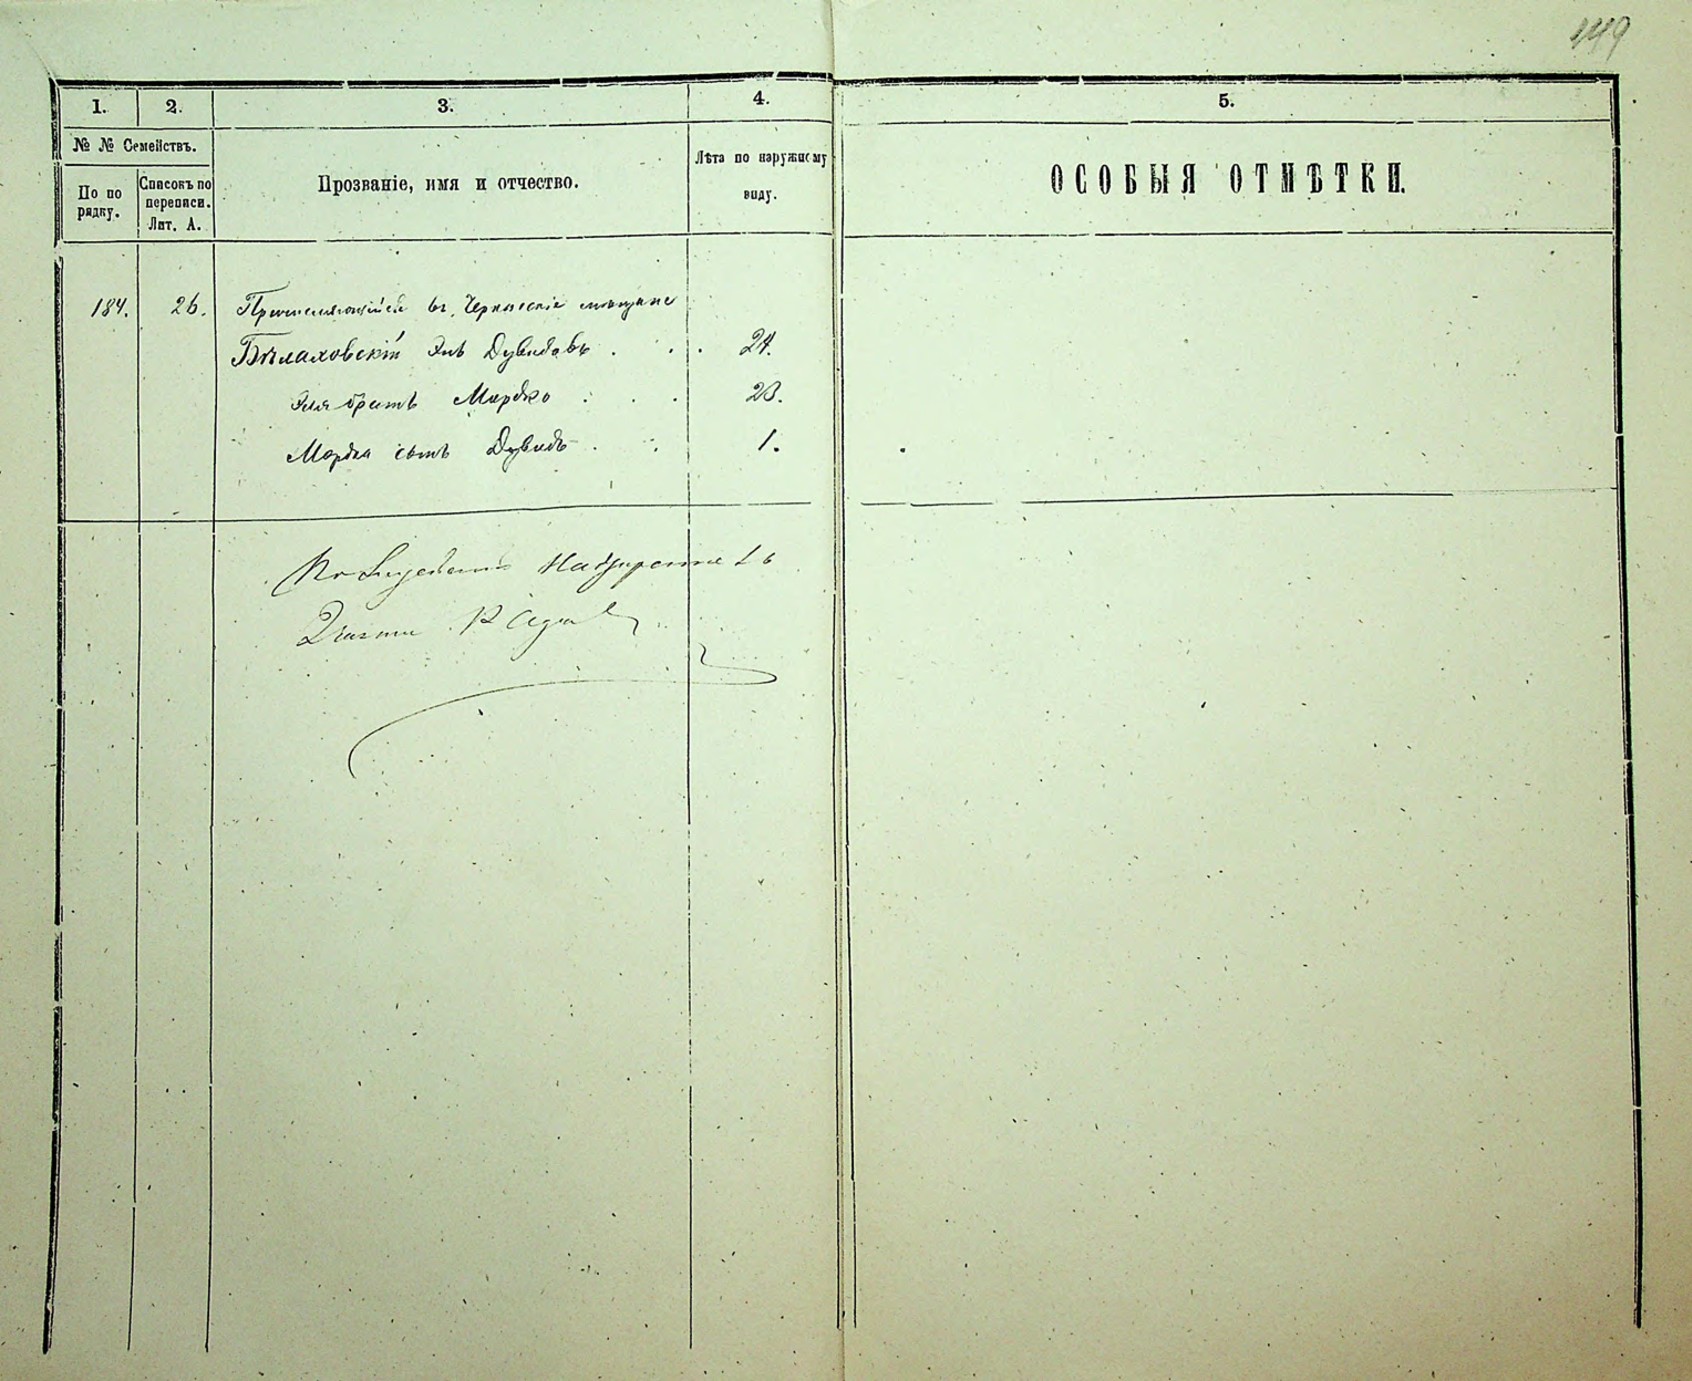 449
1.
2.
3.
4.
5.
№ № Семействъ.
По по
рядку.
Списокъ по
переписи.
Лит. А.
Прозваніе, имя и отчество.
Лѣта по наружному
виду.
ОСОБЫЯ ОТМѢТКИ.
184. 26. Причисляющійся въ Черкасскіе мѣщане
Бѣлаховскій Эль Дувидовъ 24.
Эля братъ Мордко 23.
Мордка сынъ Дувидъ 1.